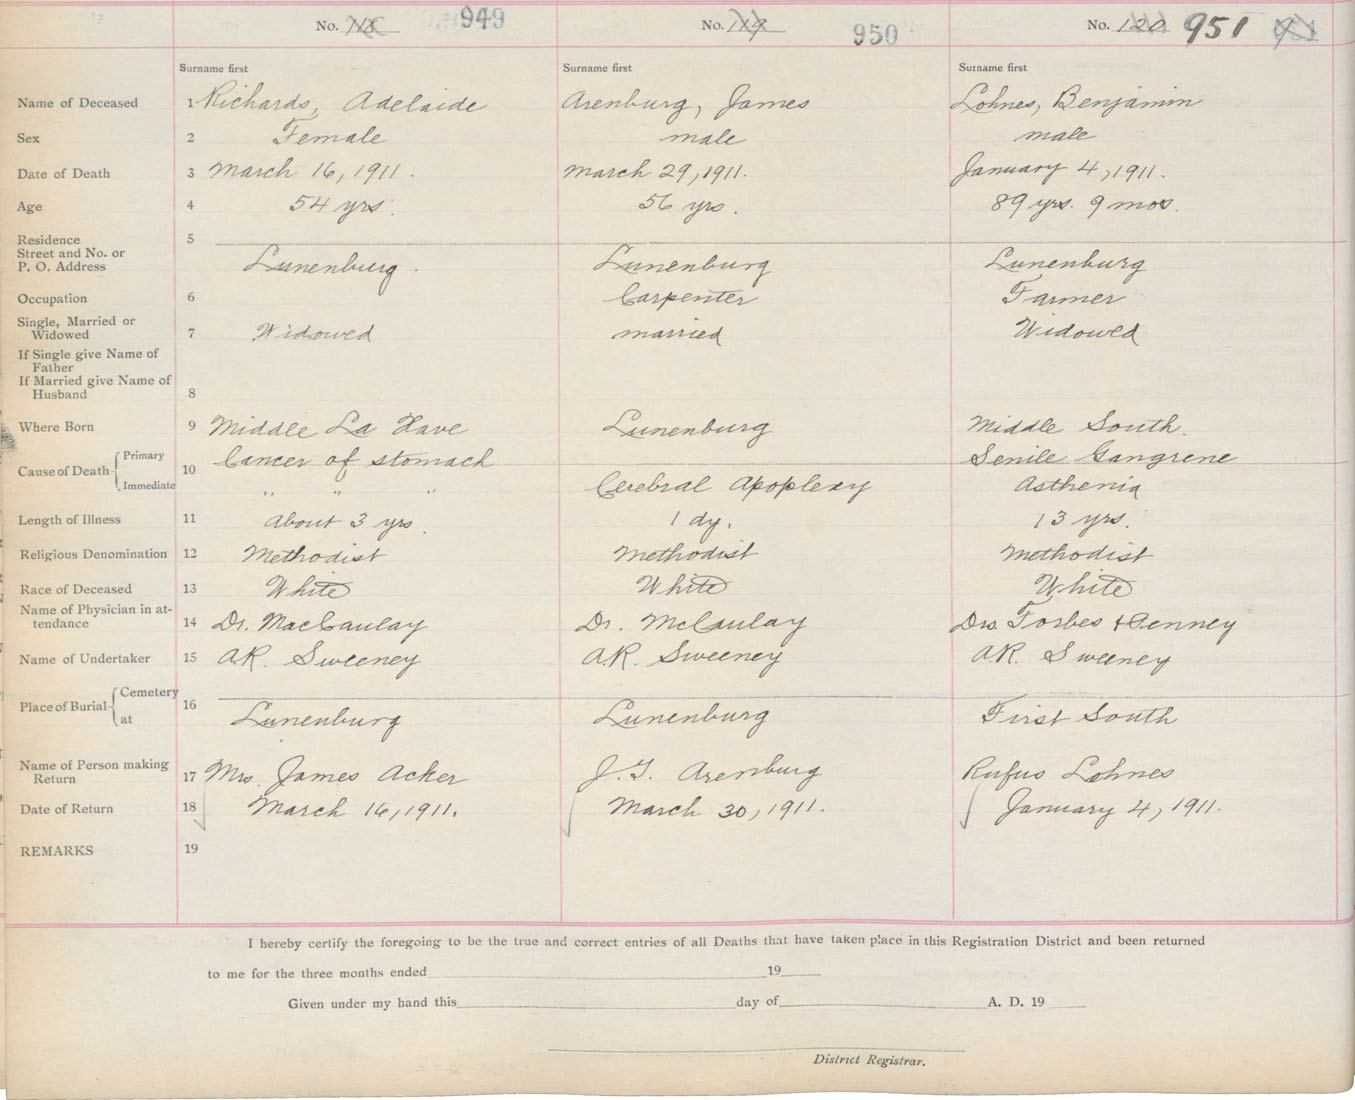 No. 118 949 No. 119 950 No. 120 951
Surname first Surname first Surname first
Name of Deceased 1 Richards, Adelaide Arenburg, James Lohnes, Benjamin
Sex 2 Female male male
Date of Death 3 March 16, 1911. March 29, 1911. January 4, 1911.
Age 4 54 yrs. 56 yrs. 89 yrs. 9 mos.
Residence 5
Street and No. or
P. O. Address Lunenburg. Lunenburg Lunenburg
Occupation 6 Carpenter Farmer
Single, Married or
Widowed 7 Widowed married Widowed
If Single give Name of
Father
If Married give Name of
Husband 8
Where Born 9 Middle La Have Lunenburg Middle South.
Cause of Death 10 Primary Cancer of stomach Senile Gangrene
Immediate " " " Cerebral Apoplexy Asthenia
Length of Illness 11 About 3 yrs. 1 dy. 13 yrs.
Religious Denomination 12 Methodist Methodist Methodist
Race of Deceased 13 White White White
Name of Physician in at-
tendance 14 Dr. MacCaulay Dr. McCaulay Drs. Forbes & Penney
Name of Undertaker 15 A.R. Sweeney A.R. Sweeney A.R. Sweeney
Place of Burial 16 Cemetery
at Lunenburg Lunenburg First South
Name of Person making
Return 17 Mrs. James Acker J. G. Arenburg Rufus Lohnes
Date of Return 18 March 16, 1911. March 30, 1911. January 4, 1911.
REMARKS 19
I hereby certify the foregoing to be the true and correct entries of all Deaths that have taken place in this Registration District and been returned
to me for the three months ended 19
Given under my hand this day of A. D. 19
District Registrar.